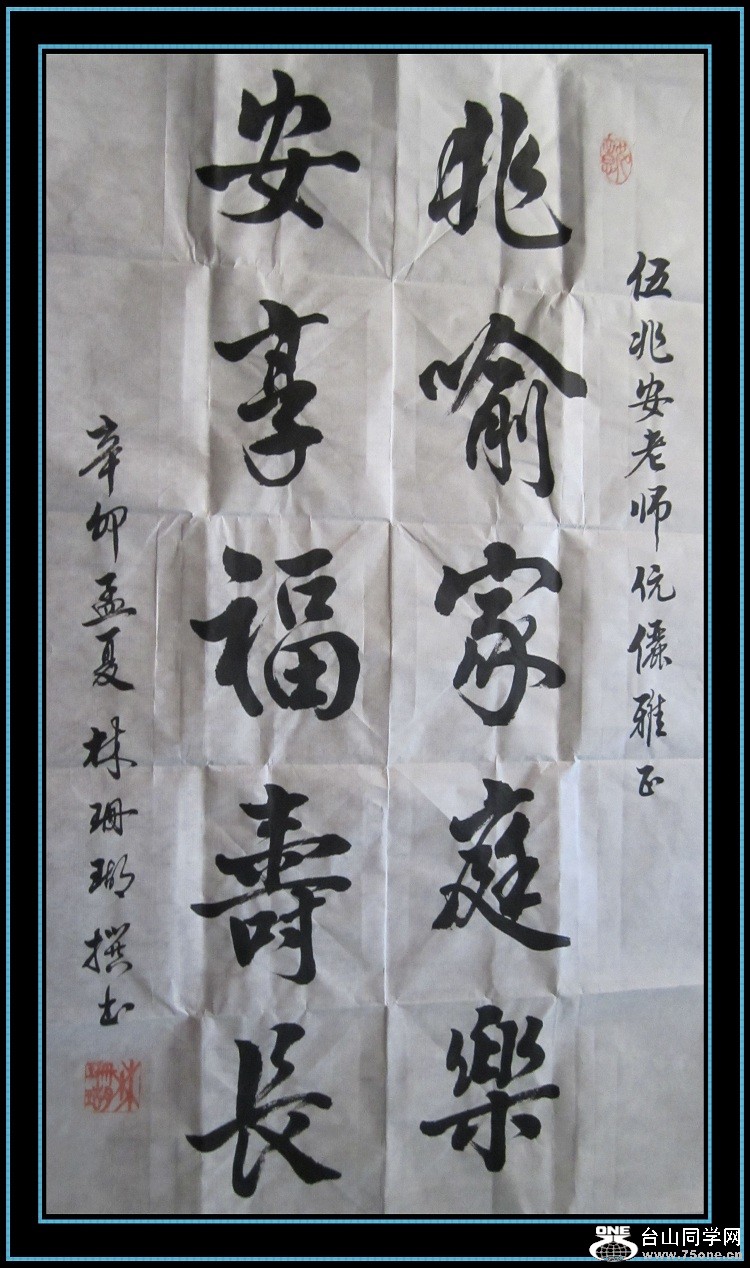 伍兆安老师伉儷雅正
兆喻家庭樂
安享福壽長
辛卯孟夏 林珊瑚撰书
林珊瑚
ONE
台山同学网
www.75one.cn